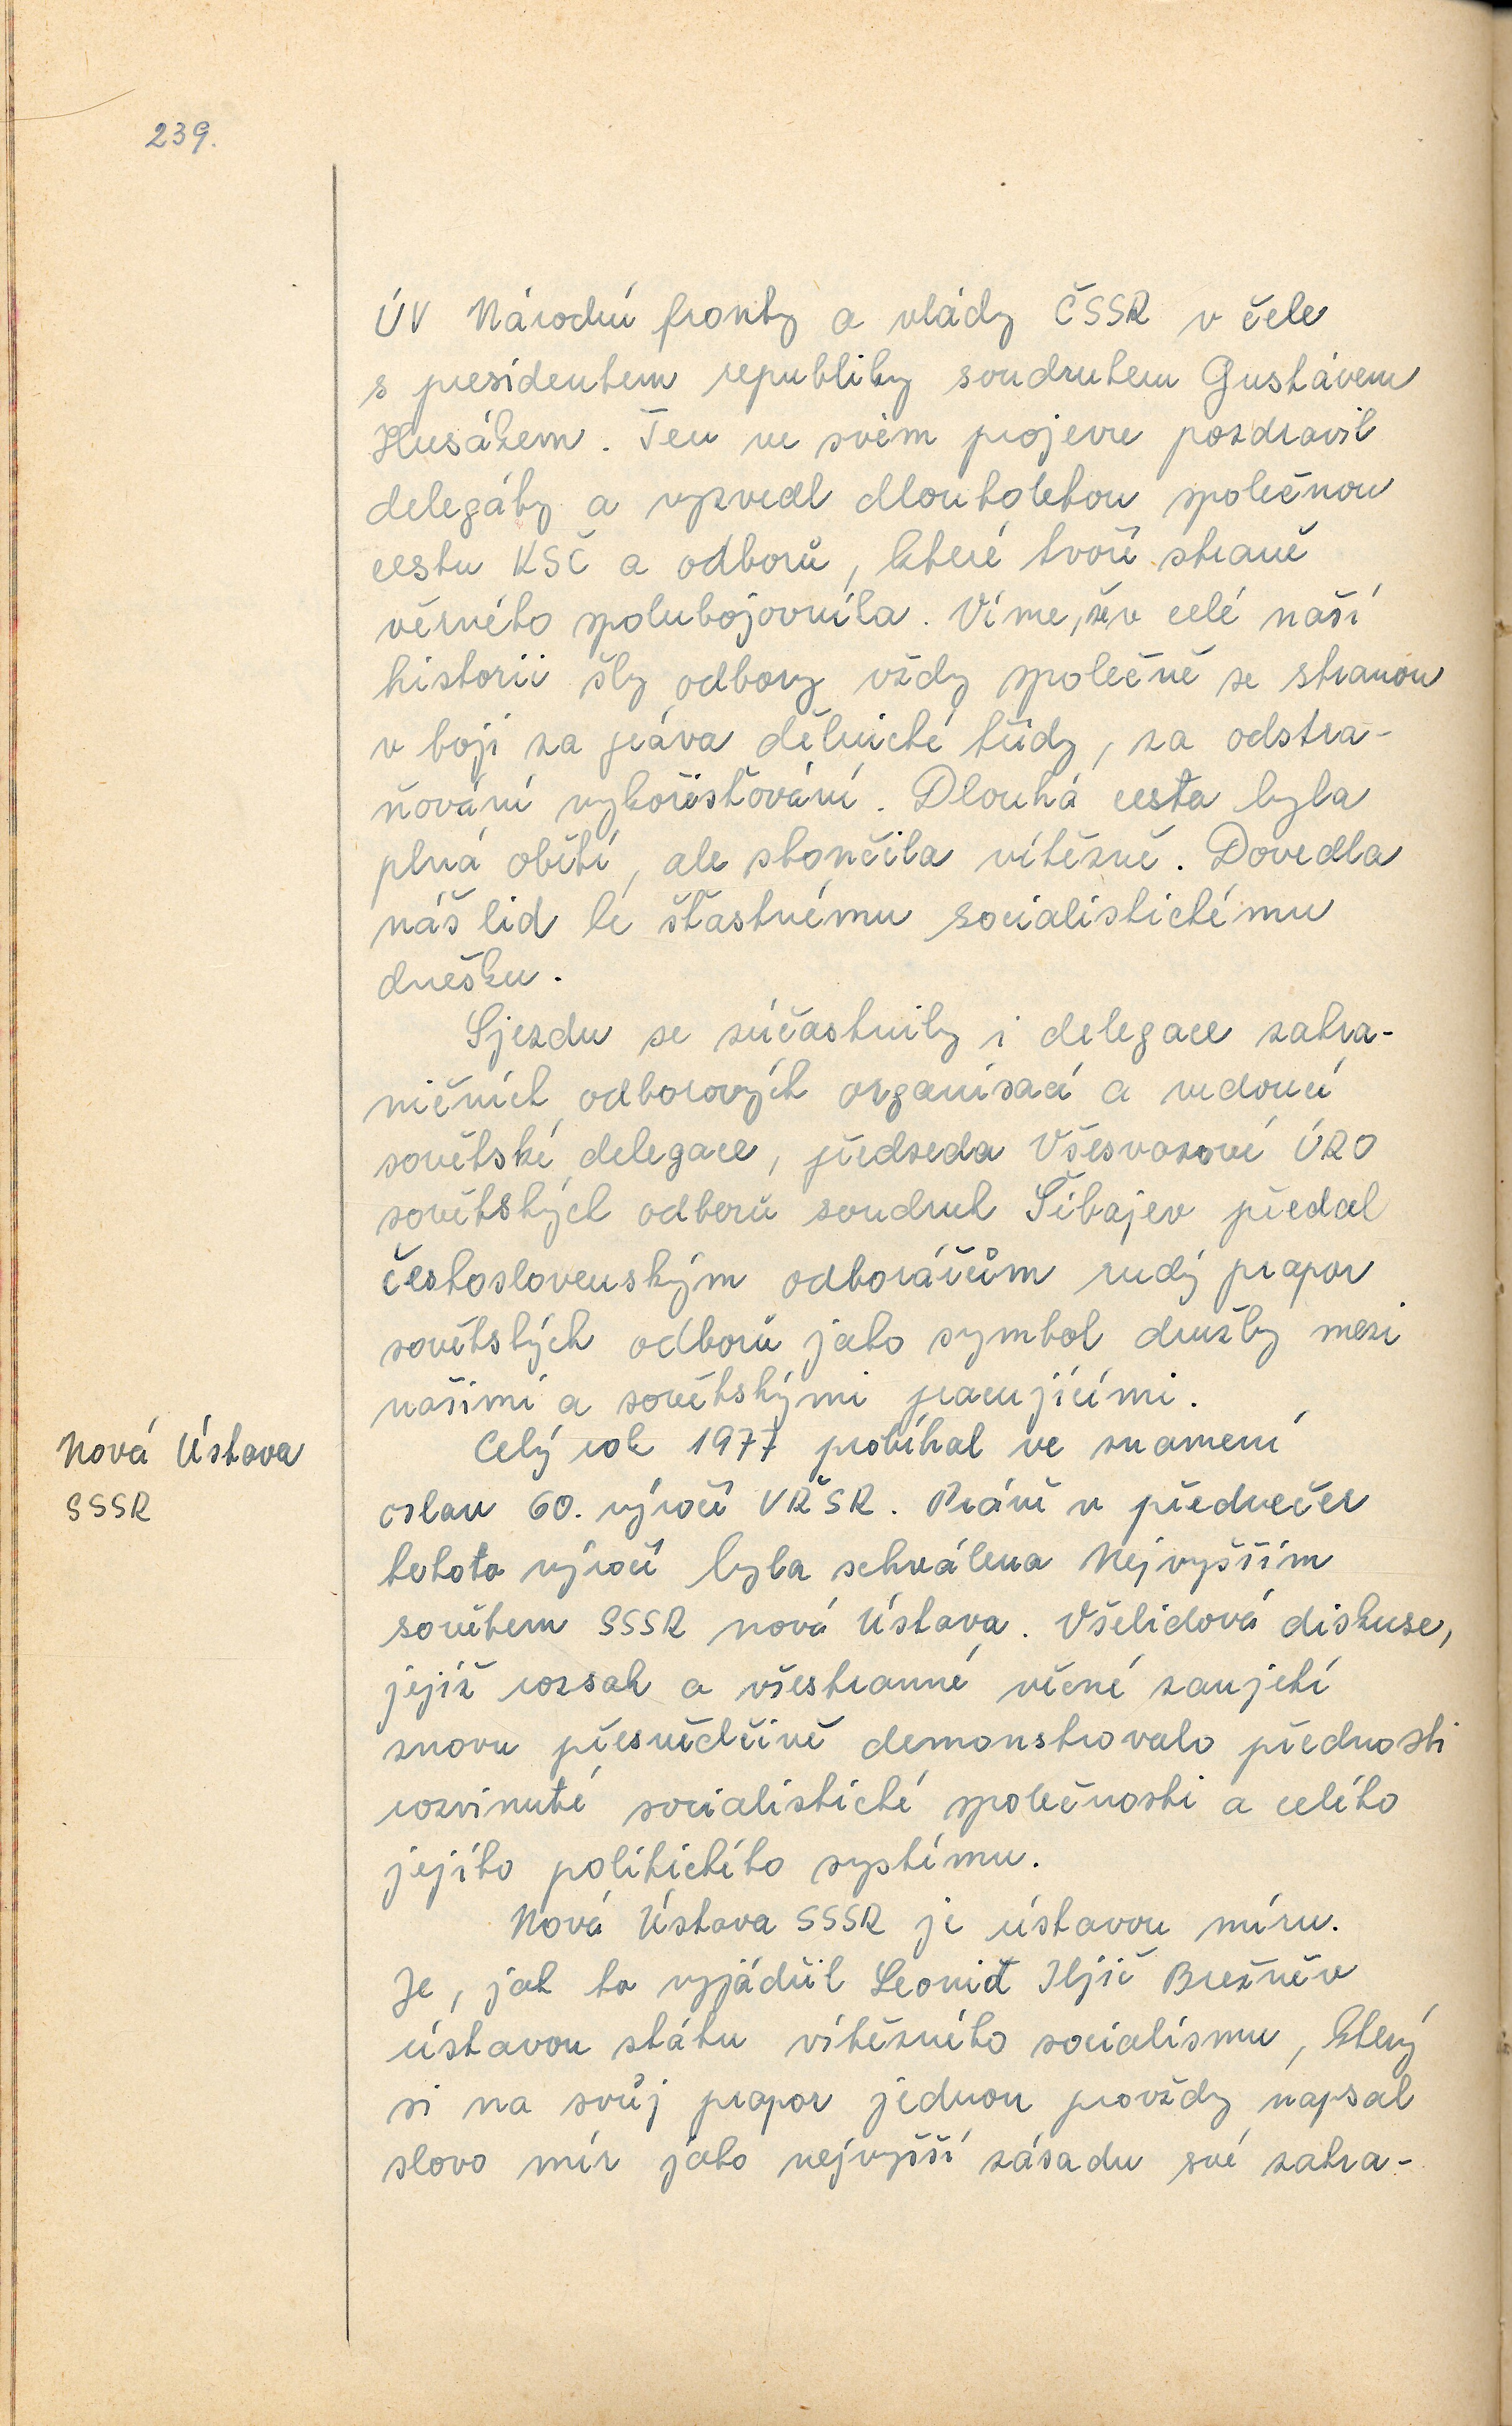 239.
ÚV Národní fronty a vlády ČSSR v čele
s presidentem republiky soudruhem Gustávem
Husákem. Ten ve svém projevu pozdravil
delegáty a vyzvedl dlouholetou společnou
cestu KSČ a odborů, které tvoří straně
věrného spolubojovníka. Víme, že v celé naší
historii šly odbory vždy společně se stranou
v boji za práva dělnické třídy, za odstra-
ňování vykořisťování. Dlouhá cesta byla
plná obětí, ale skončila vítězně. Dovedla
náš lid k šťastnému socialistickému
dnešku.
Sjezdu se zúčastnily i delegace zahra-
ničních odborových organisací a vedoucí
sovětské delegace, předseda Všesvazové ÚRO
sovětských odborů soudruh Šibajev předal
československým odborářům rudý prapor
sovětských odborů jako symbol družby mezi
našimi a sovětskými pracujícími.
Nová Ústava
SSSR
Celý rok 1977 probíhal ve znamení
oslav 60. výročí VŘSR. Právě v předvečer
tohoto výročí byla schválena Nejvyšším
sovětem SSSR nová Ústava. Všelidová diskuse,
jejíž rozsah a všestranné věcné zaujetí
znovu přesvědčivě demonstrovalo přednosti
rozvinuté socialistické společnosti a celého
jejího politického systému.
Nová Ústava SSSR je ústavou míru.
Je, jak to vyjádřil Leonid Iljič Brežněv
ústavou státu vítězného socialismu, který
si na svůj prapor jednou provždy napsal
slovo mír jako nejvyšší zásadu své zahra-